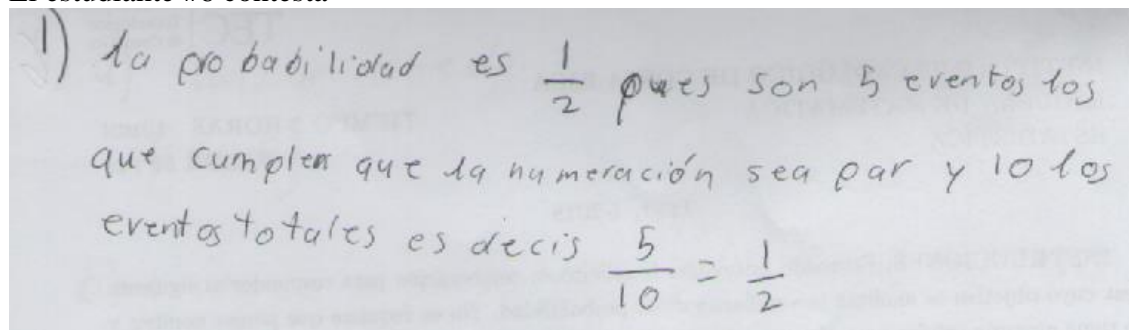 1) la probabilidad es 1/2 pues son 5 eventos los
que cumplen que la numeración sea par y 10 los
eventos totales es decis 5/10 = 1/2